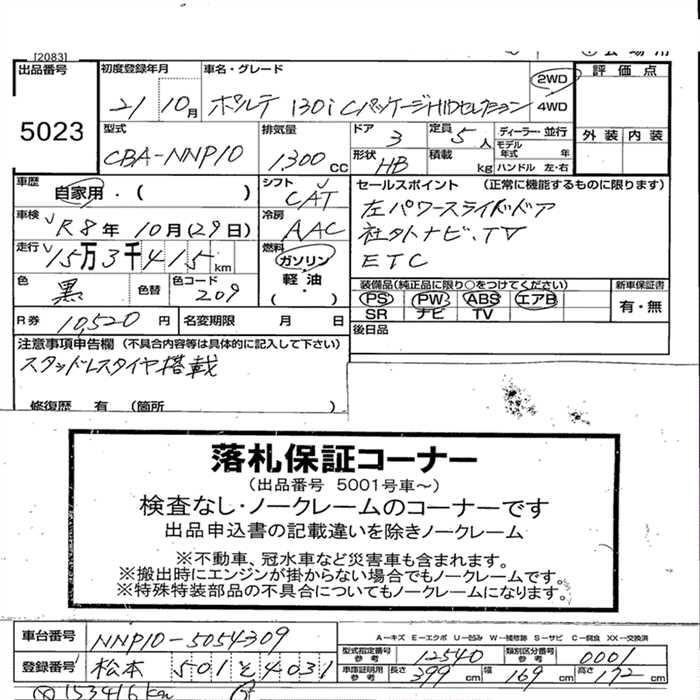 [2083]
出品番号 初度登録年月 車名・グレード 評価点
5023 21 10月 ポルテ 130i Cパッケージ HIDセレクション 2WD
4WD
型式 排気量 ドア 定員 ディーラー・並行 外装 内装
CBA-NNP10 1,300CC 3 5人 モデル年式 年
形状 HB 積載 kg ハンドル 左・右
車歴 自家用・( ) シフト CAT セールスポイント (正常に機能するものに限ります)
車検 R8年 10月(29日) 冷房 AAC 左パワースライドドア
社外ナビ、TV
走行 15万3千415km 燃料 ガソリン・軽油・( ) ETC
色 黒 色替 色コード 209 装備品(純正品に限り○をつけてください) 新車保証書
PS PW ABS エアB 有・無
SR ナビ TV
R券 10,520円 名変期限 月 日 後日品
注意事項申告欄 (不具合内容等は具体的に記入して下さい)
スタッドレスタイヤ搭載
修復歴 有 (箇所 )
落札保証コーナー
(出品番号 5001号車~)
検査なし・ノークレームのコーナーです
出品申込書の記載違いを除きノークレーム
※不動車、冠水車など災害車も含まれます。
※搬出時にエンジンが掛からない場合でもノークレームです。
※特殊特装部品の不具合についてもノークレームになります。
車台番号 NNP10-5054309 A-キズ E-エクボ U-凹み W-補修跡 S-サビ C-腐食 XX-交換済
型式指定番号 参考 12540 類別区分番号 参考 0001
登録番号 松本 501 そ 4031 車庫証明用 参考 長さ 399cm 幅 169cm 高さ 172cm
153416km